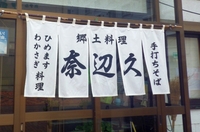 郷土料理
手打ちそば
奈辺久
ひめます
わかさぎ料理